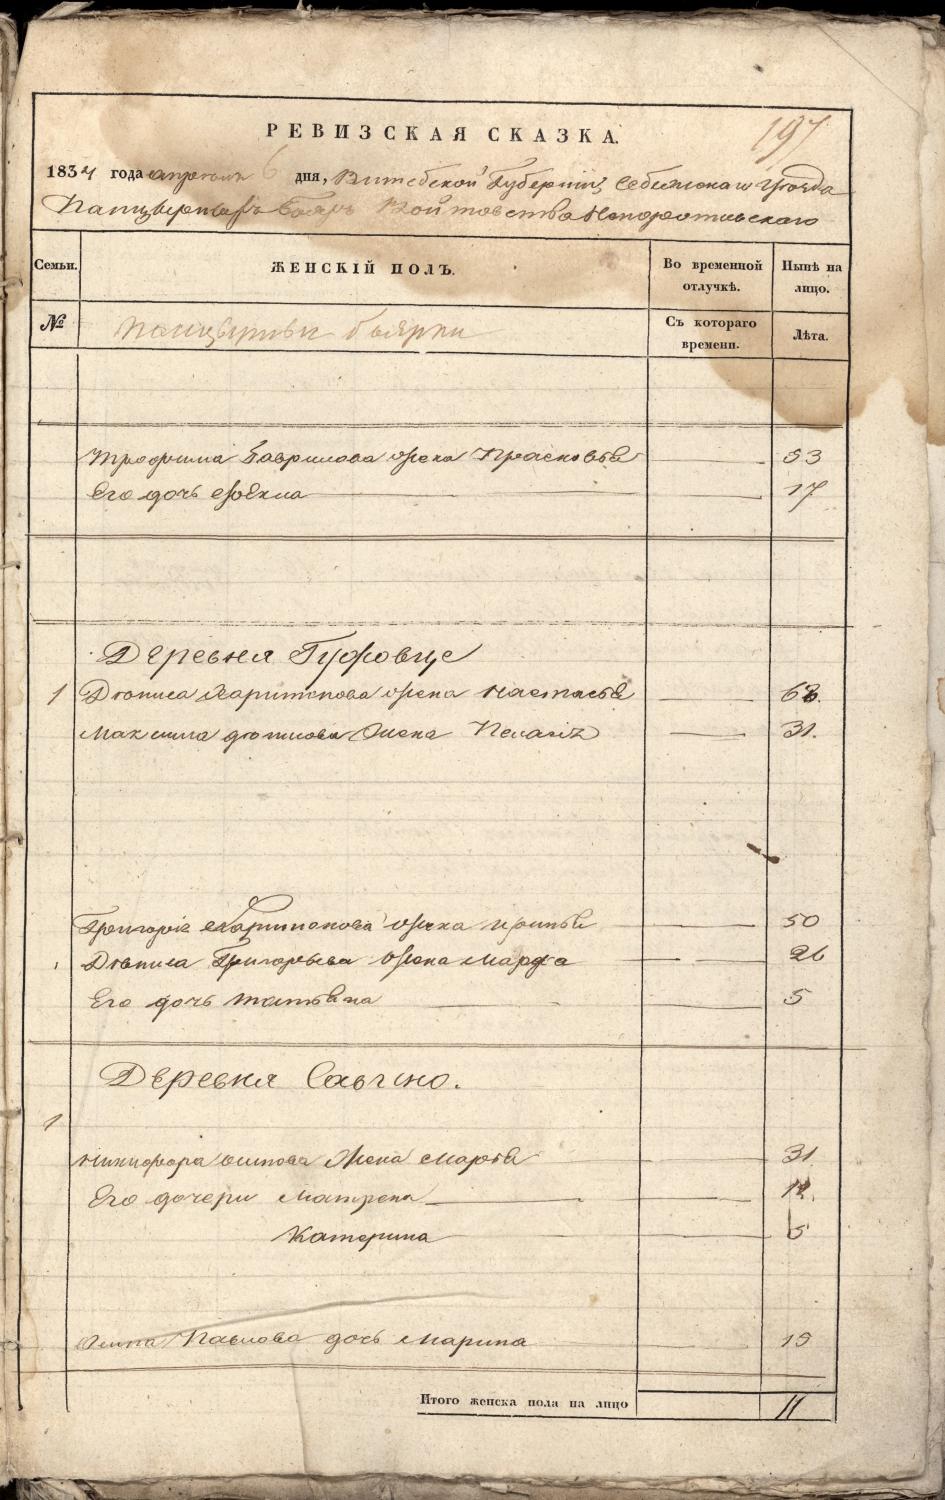 197
РЕВИЗСКАЯ СКАЗКА.
1834 года апреля 6 дня, Витебской Губернии, Себежскаго уѣзда
Панцырныхъ бояръ Войтовства Непоротовскаго
Семьи.
ЖЕНСКІЙ ПОЛЪ.
Во временной отлучкѣ.
Нынѣ на лицо.
№
Панцырныи боярки
Съ котораго времени.
Лѣта.
Трофима Гаврилова жена Прасковья 53
Его дочь Ѳекла 17
Деревня
1 Дениса Харитонова жена Настасья 68.
Максима Денисова жена Пелагія 31.
Григорія Харитонова жена Ирина 50
Дениса Григорьева жена Марфа 26
Его дочь Татьяна 5
Деревня
1
Никифора Осипова жена Марья 31
Его дочери Матрена
Катерина 5
Осипа Павлова дочь Марина 15
Итого женска пола на лицо 11